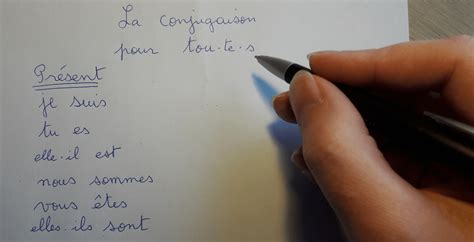 La conjugaison
pour tou·te·s
Présent
je suis
tu es
elle·il est
nous sommes
vous êtes
elles·ils sont